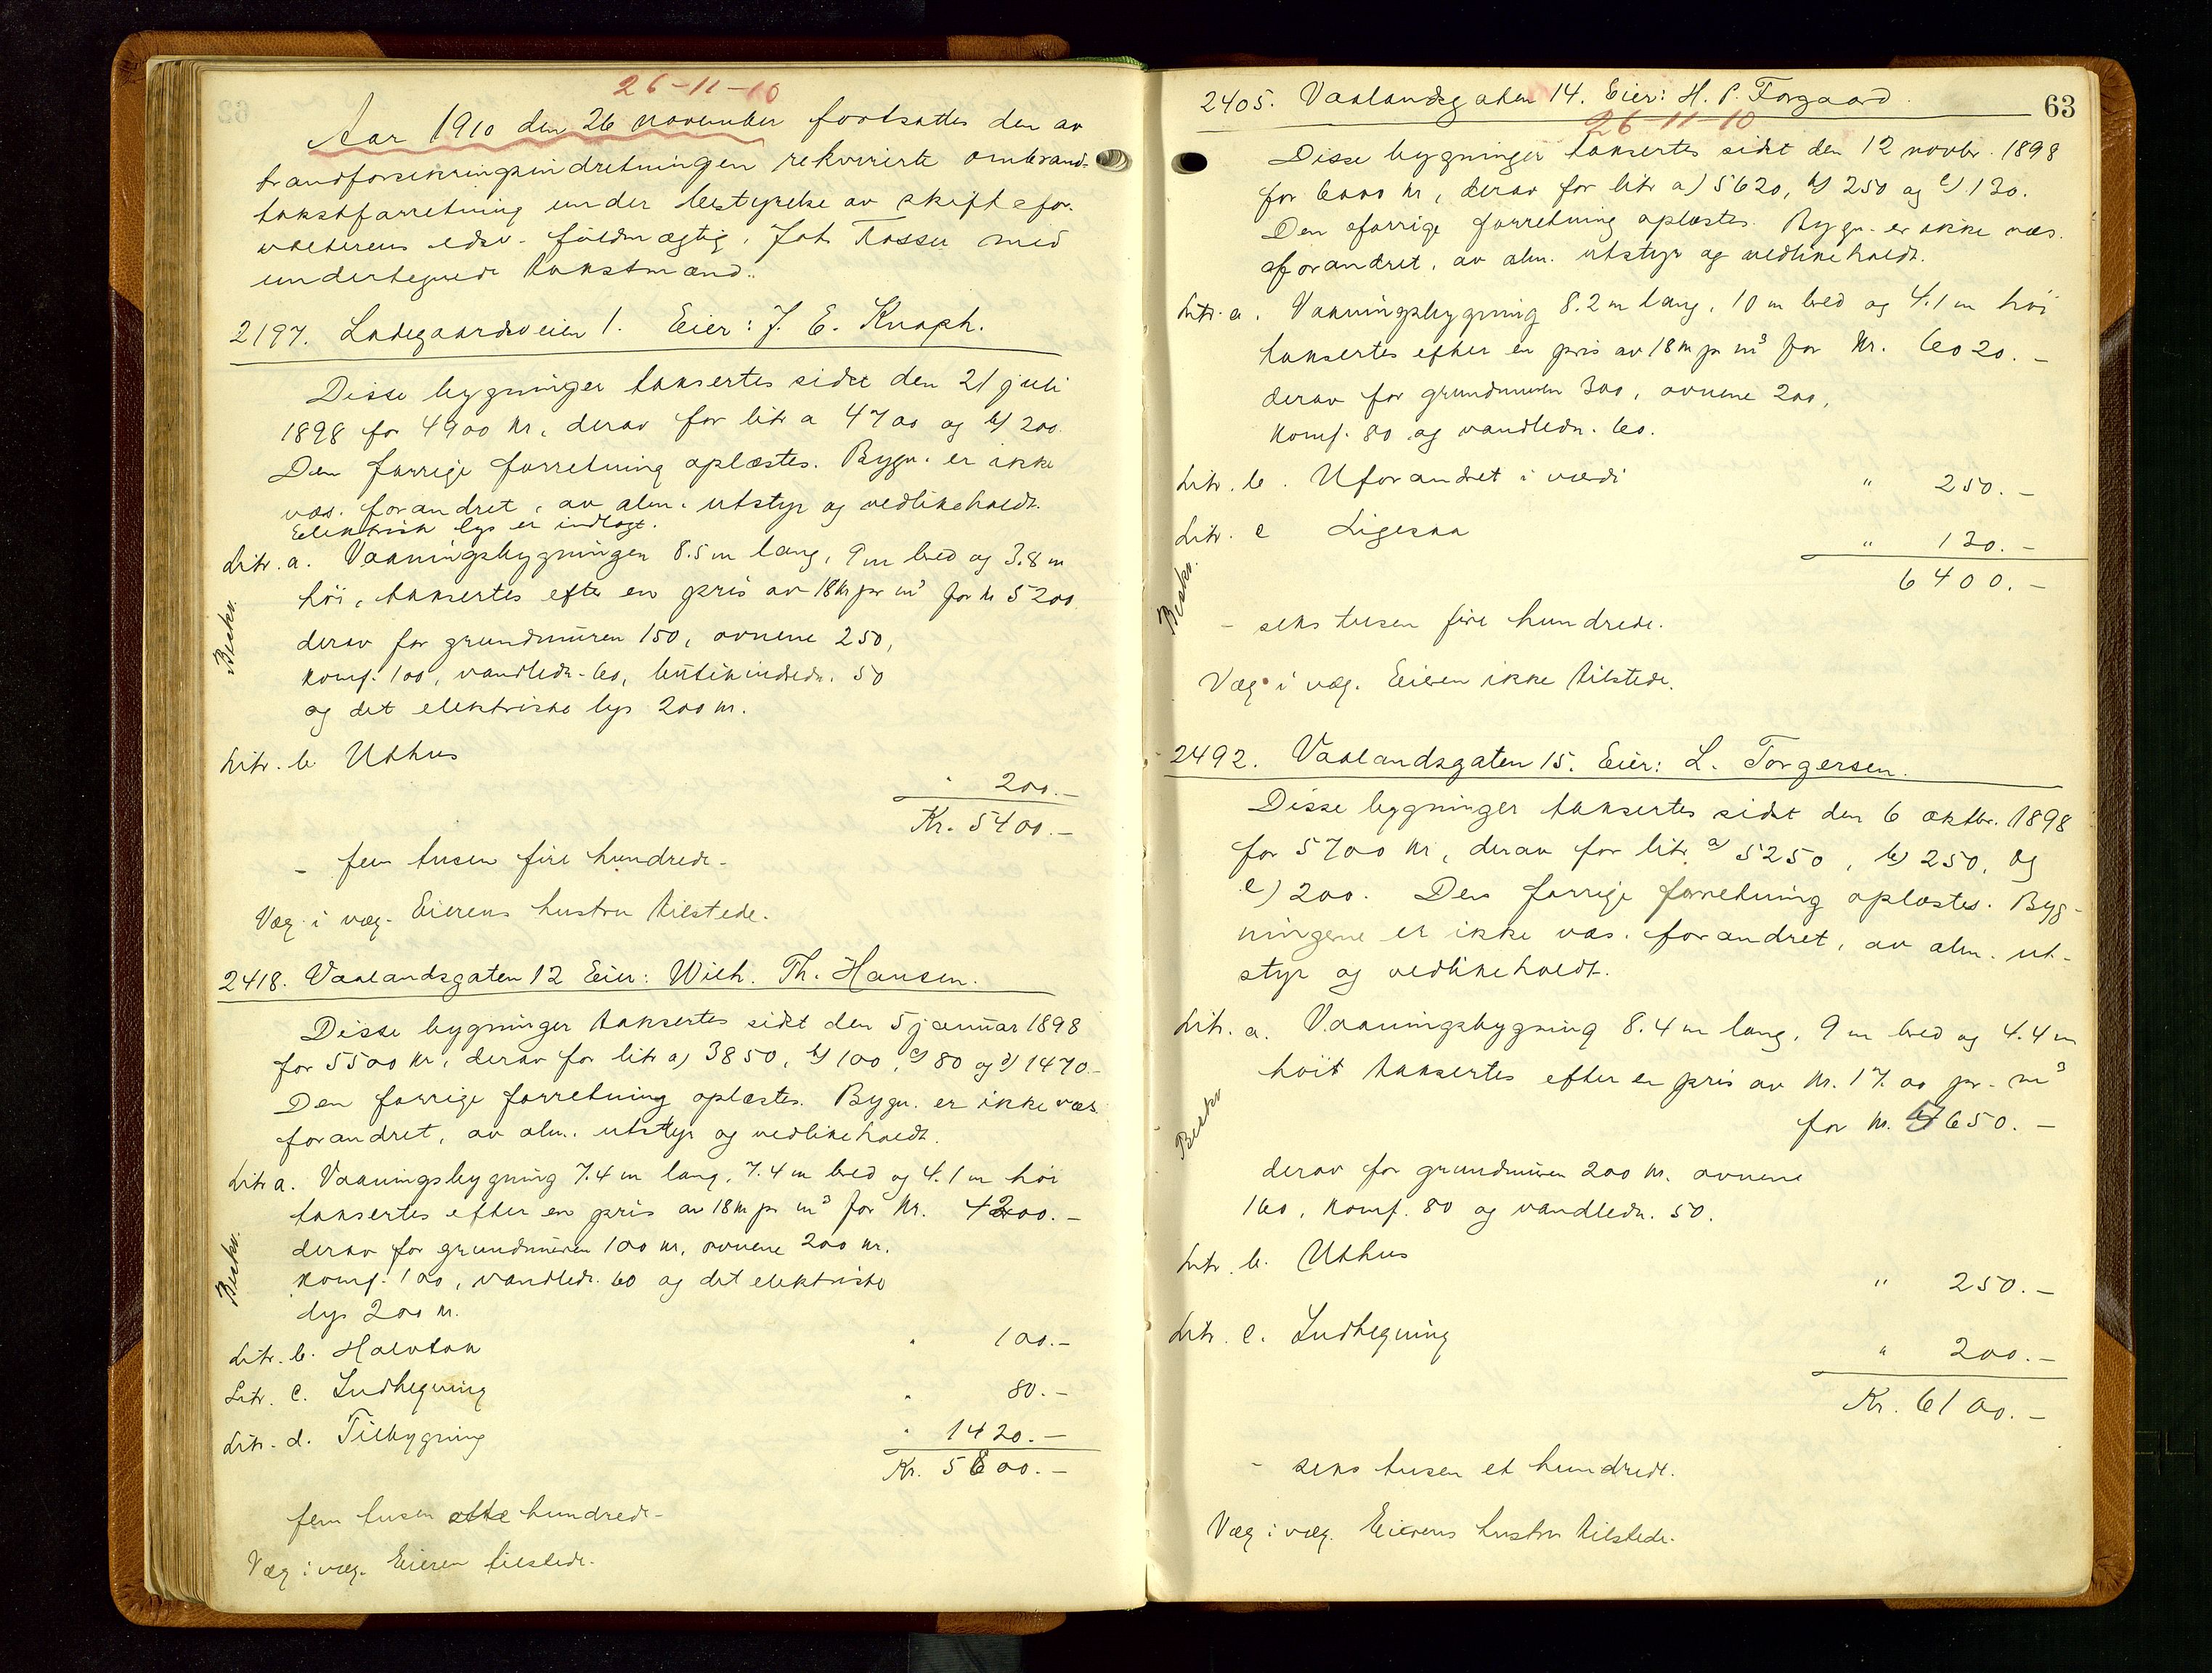 26-11-10
Aar 1910 den 26 november fortsattes den av
brandforsikringsindretningen rekvirerte ombrand-
takstforretning under bestyrelse av skiftefor-
valterens edsv. fuldmægtig, Joh. Tasser med
undertegnede takstmænd.
2197. Ladegaardsveien 1. Eier: J. E. Knoph.
Disse bygninger taksertes sidst den 21 juli
1898 for 4900 kr, derav for litr a 4700 og b) 200.
Den forrige forretning oplæstes. Bygn. er ikke
væs. forandret, av alm. utstyr og vedlikeholdt.
Elektrisk lys er indlagt.
Litr. a. Vaaningsbygningen 8.5 m lang, 9 m bred og 3.8 m
høi, taksertes efter en pris av 18 kr pr m³ for kr 5200
derav for grundmuren 150, ovnene 250,
komf. 100, vandledn. 60, butikindredn. 50
og det elektriske lys 200 kr.
Beskr.
Litr. b. Uthus
" 200.-
Kr. 5400.-
- fem tusen fire hundrede -
Væg i væg. Eierens hustru tilstede.
2418. Vaalandsgaten 12 Eier: Wilh. Th. Hansen.
Disse bygninger taksertes sidst den 5 januar 1898
for 5500 kr, derav for litr a) 3850, b) 100, c) 80 og d) 1470.-
Den forrige forretning oplæstes. Bygn. er ikke væs.
forandret, av alm. utstyr og vedlikeholdt.
Litr a. Vaaningsbygning 7.4 m lang, 7.4 m bred og 4.1 m høi
taksertes efter en pris av 18 kr pr m³ for Kr. 4200.-
derav for grundmuren 100 kr, ovnene 200 kr.
komf. 100, vandledn. 60 og det elektriske
lys 200 kr.
Beskr.
Litr. b. Halvtak " 100.-
Litr. c. Indhegning " 80.-
Litr. d. Tilbygning " 1420.-
Kr. 5800.-
fem tusen otte hundrede -
Væg i væg. Eieren tilstede.
63
2405. Vaalandsgaten 14. Eier: H. P. Torgaard.
26-11-10
Disse bygninger taksertes sidst den 12 novbr. 1898
for 6000 kr, derav for litr a) 5620, b) 250 og c) 130.
Den forrige forretning oplæstes. Bygn. er ikke væs.
forandret, av alm. utstyr og vedlikeholdt.
Litr. a. Vaaningsbygning 8.2 m lang, 10 m bred og 4.1 m høi
taksertes efter en pris av 18 kr pr m³ for Kr. 6020.-
derav for grundmuren 300, ovnene 200,
komf. 80 og vandledn. 60.
Litr. b. Uforandret i værdi " 250.-
Litr. c Ligesaa " 130.-
6400.-
Beskr.
- seks tusen fire hundrede.
Væg i væg. Eieren ikke tilstede.
2492. Vaalandsgaten 15. Eier: L. Torgersen.
Disse bygninger taksertes sidst den 6 oktbr. 1898
for 5700 kr, derav for litr. a) 5250, b) 250, og
c) 200. Den forrige forretning oplæstes. Byg-
ningene er ikke væs. forandret, av alm. ut-
styr og vedlikeholdt.
Litr. a. Vaaningsbygning 8.4 m lang, 9 m bred og 4.4 m
høit taksertes efter en pris av Kr. 17.00 pr. m³
for kr. 5650.-
Beskr.
derav for grundmuren 200 kr. ovnene
160, komf. 80 og vandledn. 50.
Litr. b. Uthus
" 250.-
Litr. c. Indhegning
" 200.-
Kr. 6100.-
- seks tusen et hundrede.
Væg i væg. Eierens hustru tilstede.